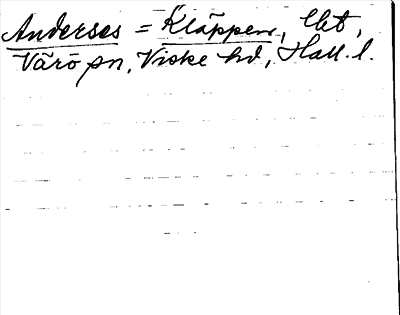 Anderses = Kläppen, lht,
Värö sn, Viske hd, Hall. l.